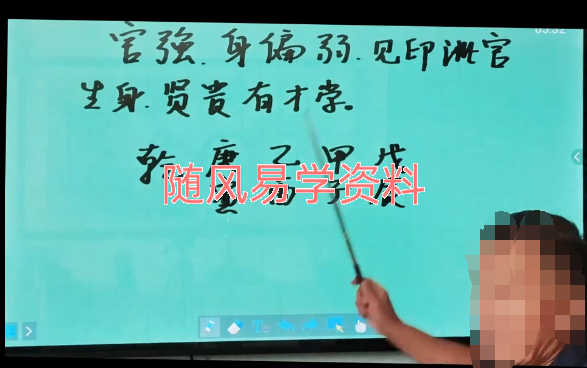 官强.身偏弱.见印泄官
生身.贤贵有才学。
乾 庚 乙 甲 戊
随风易学资料